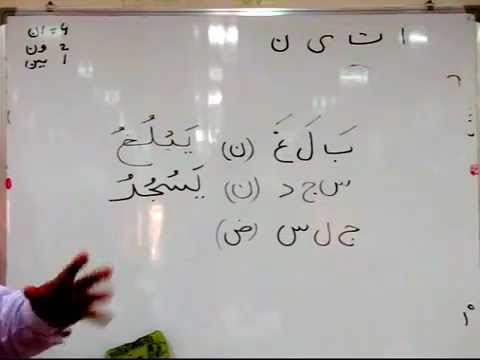 ا ت ی ن
4 = ان
2 ون
1 ین
بَ لَ غَ (ن) يَبْلُغُ
س ج د (ن) يَسْجُدُ
ج ل س (ض)